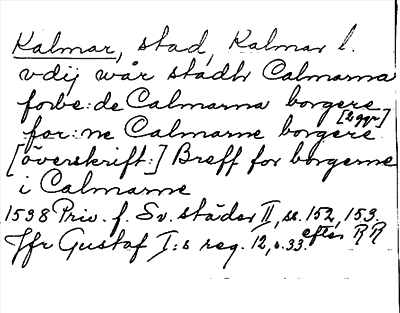 Kalmar, stad, Kalmar l.
vdij wår stadh Calmarna
forbe:de Calmarna borgere
for:ne Calmarne borgere [2 ggr]
[överskrift:] Breff for borgerne
i Calmarne
1538 Priv. f. Sv. städer II, ss. 152, 153.
Jfr Gustaf I:s reg. 12, s. 33. efter RR